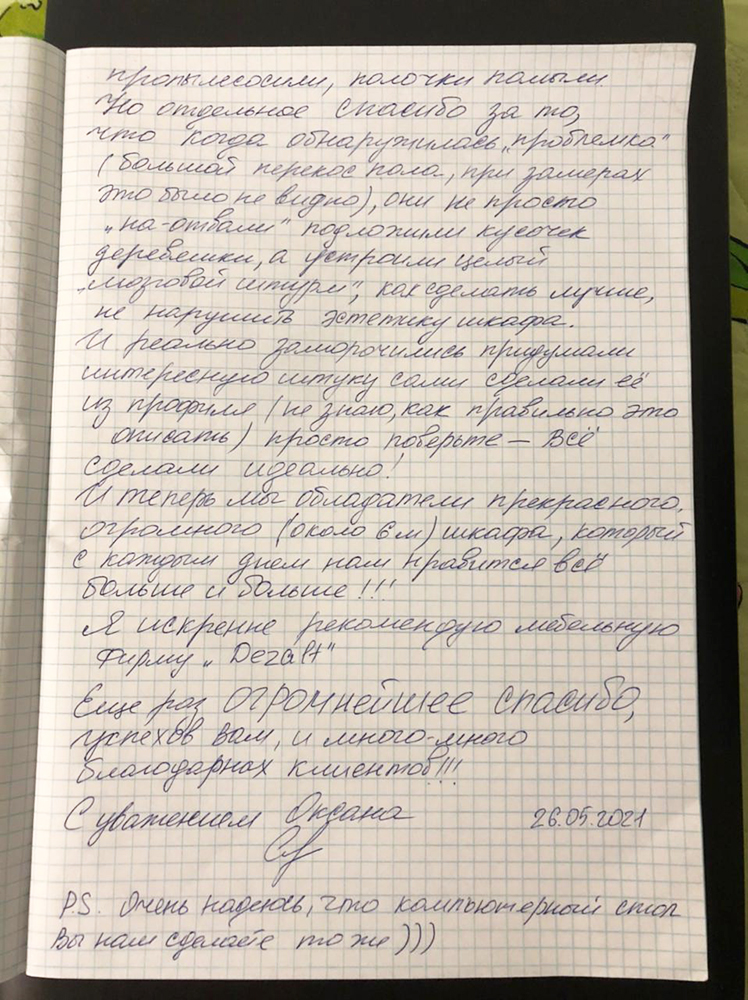 пропылесосили, полочки помыли.
Но отдельное спасибо за то,
что когда обнаружилась „проблемка"
(большой перекос пола, при замерах
это было не видно), они не просто
„на-отвали" подложили кусочек
деревешки, а устроили целый
„мозговой штурм", как сделать лучше,
не нарушить эстетику шкафа.
И реально заморочились придумали
интересную штуку сами сделали её
из профиля (не знаю, как правильно это
описать) просто поверьте – всё
сделали идеально!
И теперь мы обладатели прекрасного,
огромного (около 6 м) шкафа, который
с каждым днем нам нравится всё
больше и больше!!!
Я искренне рекомендую мебельную
фирму „Dezalt"
Еще раз огромнейшее спасибо,
успехов вам, и много-много
благодарных клиентов!!!
С уважением Оксана 26.05.2021
P.S. Очень надеюсь, что компьютерный стол
Вы нам сделаете тоже)))